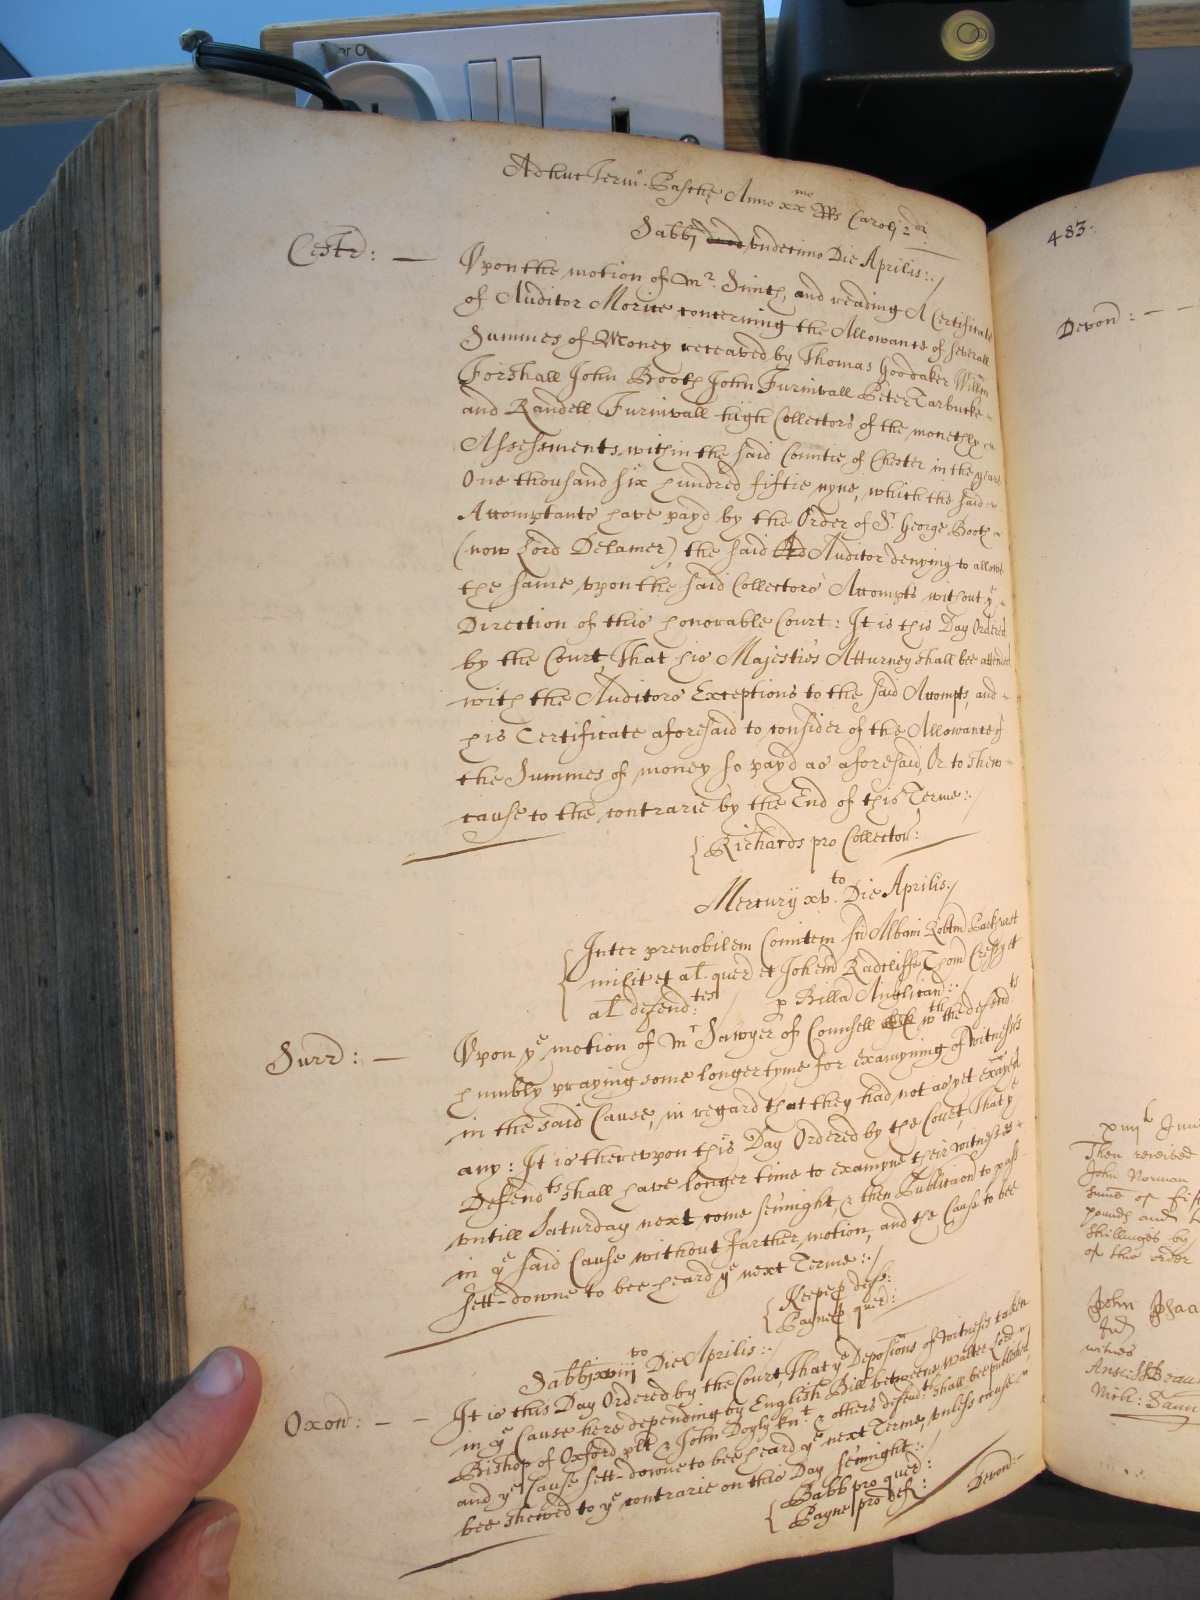 Adhuc Term: Paschę Anno xx.mo R Rs Caroli 2di
Sabbi undecimo Die Aprilis:
Cestr: — Upon the motion of Mr. Smith, and reading A Certificate
of Auditor Morice concerning the Allowance of severall
Summes of Money receaved by Thomas Goodaker Willm
Forshall John Booth John Furnivall Peter Tarbucke
and Randell Furnivall high Collectors of the monethly
Assessments within the said Countie of Chester in the yeare
One thousand six hundred fiftie nyne, which the said
Accomptants have payd by the Order of Sr George Booth
(now Lord Delamer) the said Auditor denying to allowe
the same upon the said Collectors Accompts without ye
Direction of this honorable Court: It is this Day Ordered
by the Court, That his Majesties Atturney shall bee attended
with the Auditors Exceptions to the said Accompts, and
his Certificate aforesaid to consider of the Allowance of
the Summes of money so payd as aforesaid, Or to shew
cause to the contrarie by the End of this Terme:
Richards pro Collector:
Mercurij xv.to Die Aprilis.
Inter prenobilem Comitem Sti Albani Robtm Parkhurst
milit et al quer et Johem Radcliffe Thom Cressy et
al defend:tes p Billa Anglican:
Surr: — Upon ye motion of Mr Sawyer of Counsell wth the defend:ts
humbly praying some longer tyme for examyning of witnesses
in the said Cause, in regard that they had not as yet exayed
any: It is thereupon this Day Ordered by the Court, That ye
Defendts shall have longer time to examyne their witnesses
untill Saturday next come sennight, & then Publicaon to pass
in ye said Cause without farther motion, and the Cause to bee
sett-downe to bee heard ye next Terme:
Keepe p defts:
Payne p quer:
Sabbi xviijvo Die Aprilis:
Oxon: — — It is this Day Ordered by the Court, That ye Deposions of witnesses taken
in ye Cause here depending by English Bill betweene Walter Lord
Bishop of Oxford plt & John Doyly knt & others defendts shall bee published
and ye Cause sett-downe to bee heard ye next Terme, unless cause
bee shewed to ye contrarie on this Day sennight:
Babb pro quer:
Payne pro def:
Devon:
483.
Devon: — —
xiiijth Jun
Then received
John Norman
sume of fif
pounds and
shillings by
of this order
John Isaa
witnes
Nich: Saun